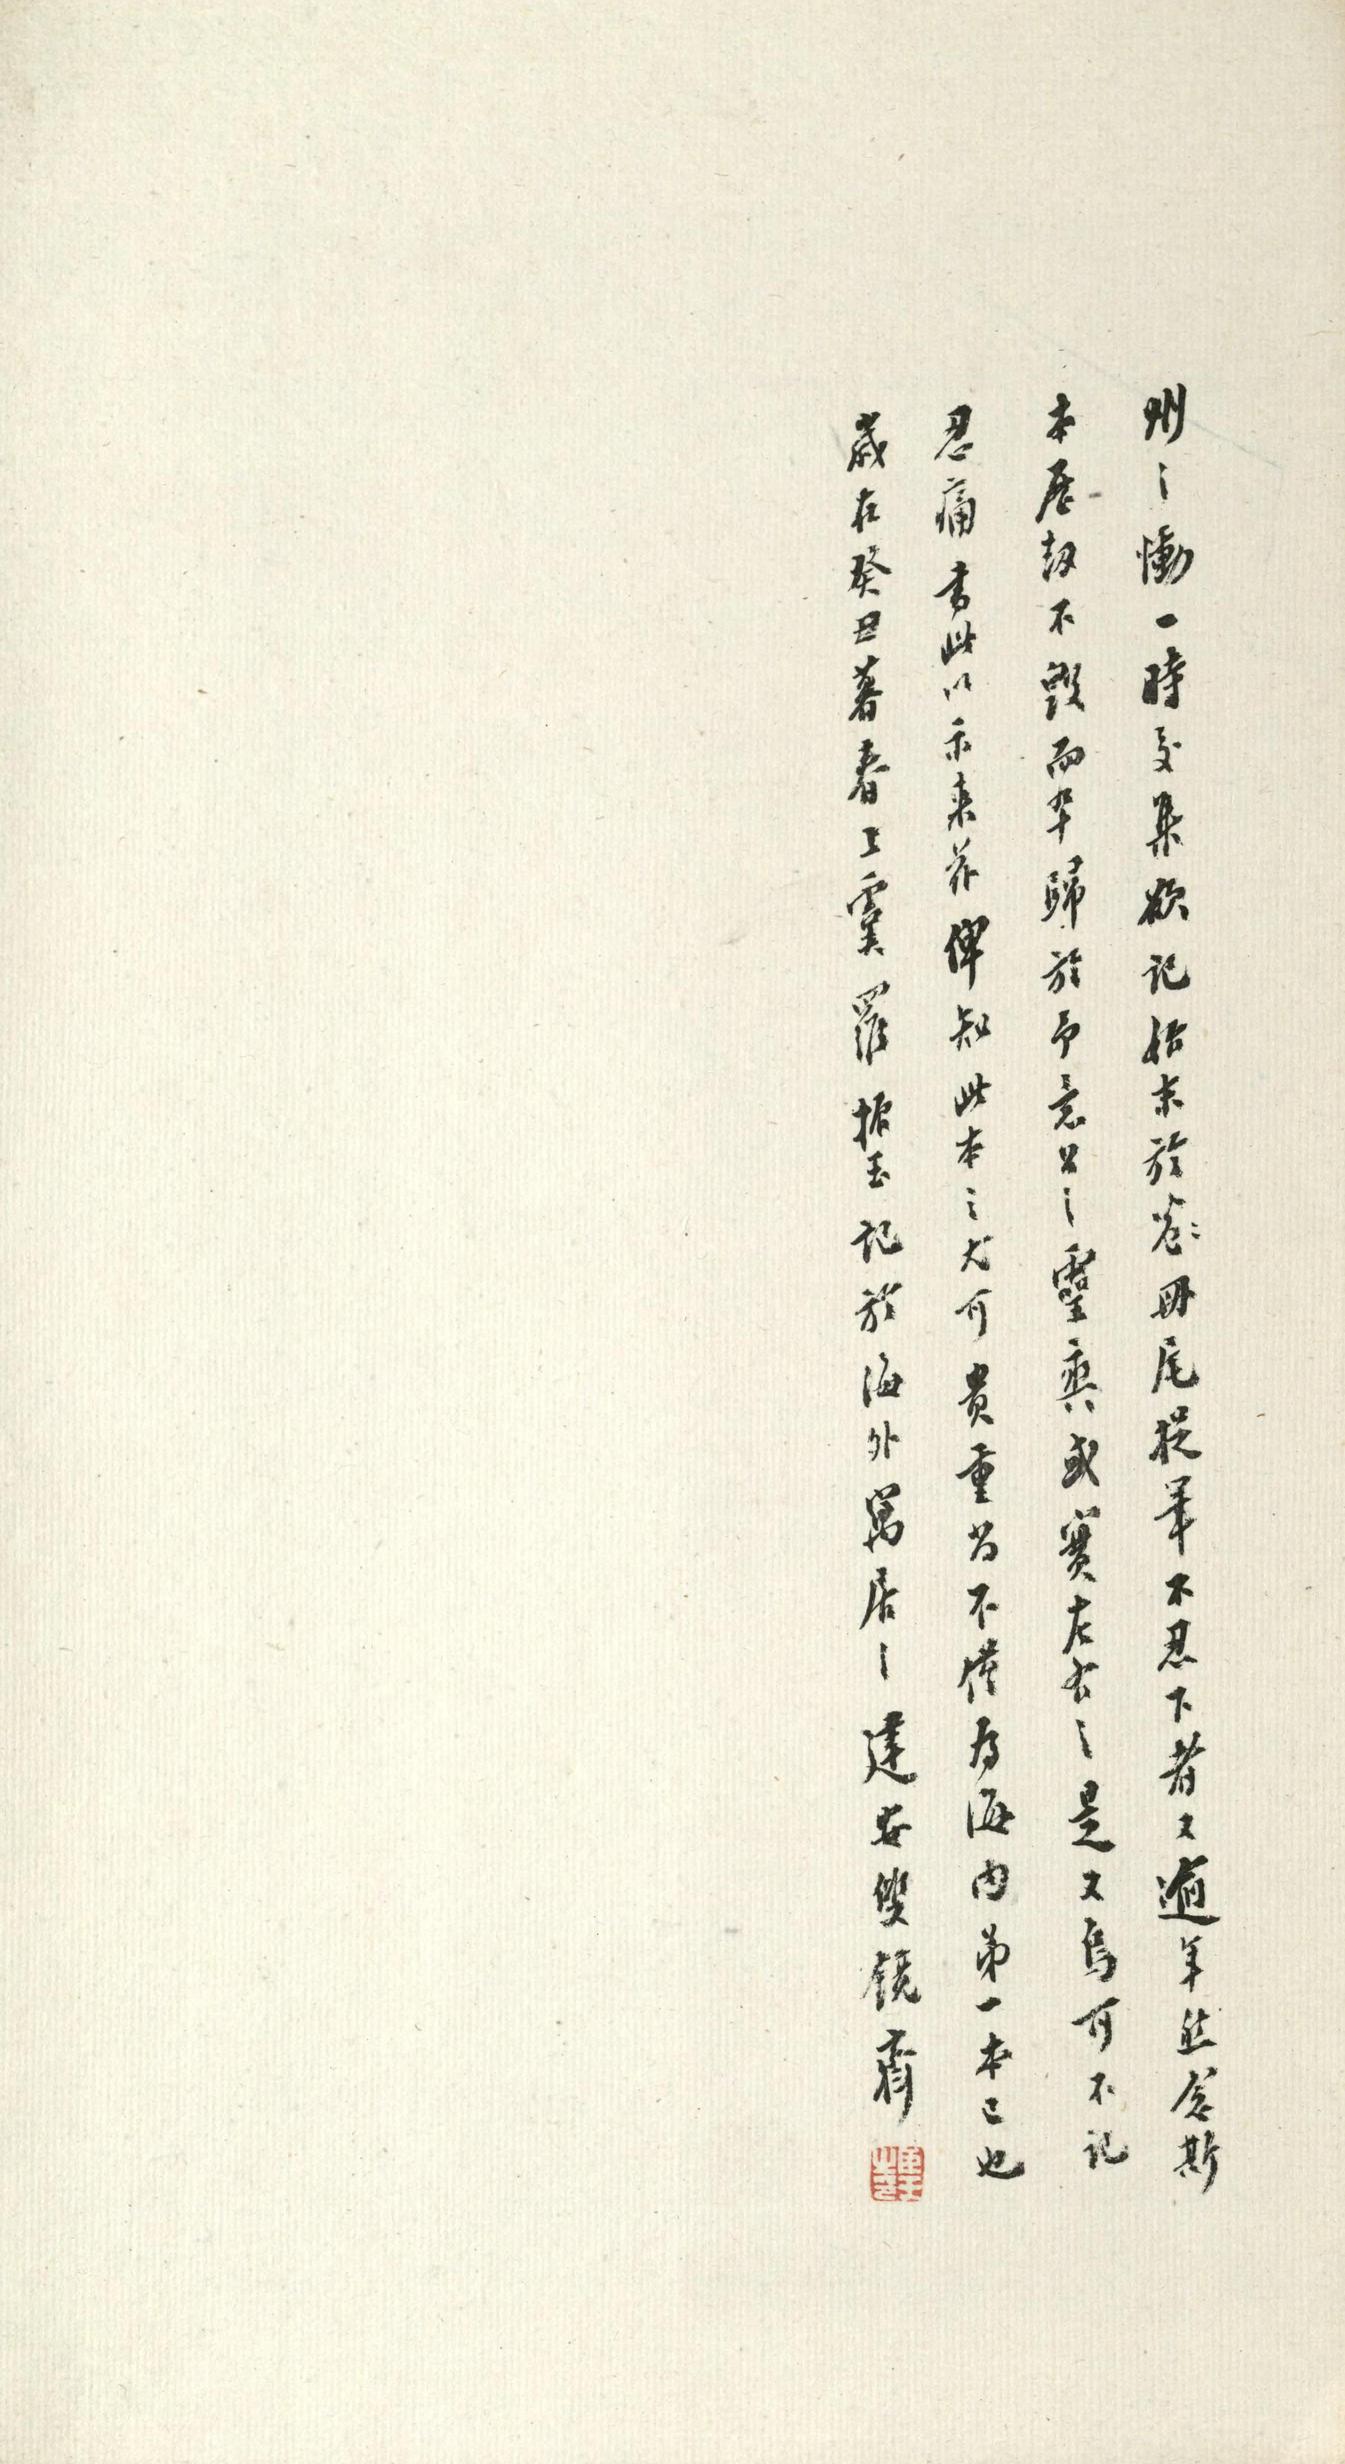 州之慟一時交集欲記始末於卷冊尾捉筆不忍下者又逾年然念斯
本歷劫不毀而卒歸於予意公之靈爽或實左右之是又烏可不記
忍痛書此以示來茲俾知此本之尤可貴重者不僅為海內第一本已也
歲在癸丑暮春上虞羅振玉記於海外寓居之建安雙鏡齋